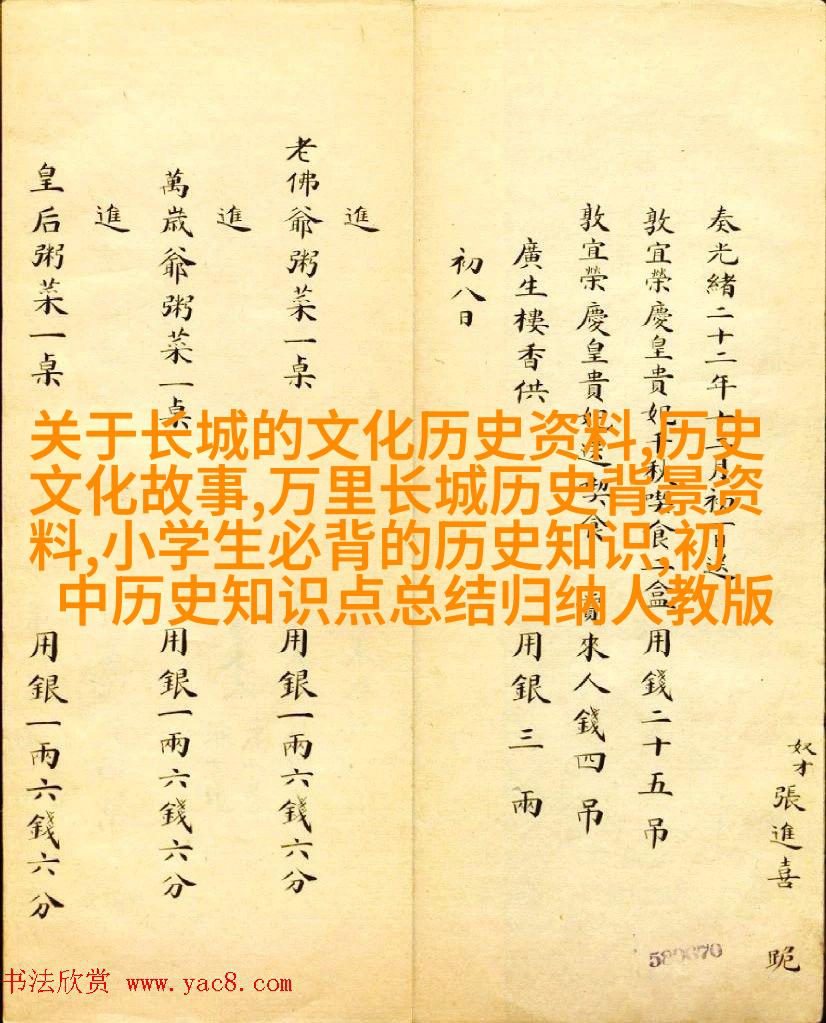 奴才張進喜 跪
奏光緒二十二年十二月初一日送
敦宜榮慶皇貴妃千秋喫食一盒 用錢二十五吊
敦宜榮慶皇貴妃送喫食 賞來人錢四吊
廣生樓香供 用銀三兩
初八日
進
老佛爺粥菜一桌 用銀一兩六錢六分
進
萬歲爺粥菜一桌 用銀一兩六錢六分
進
皇后粥菜一桌 用銀一兩六錢六分
关于长城的文化历史资料,历史
文化故事,万里长城历史背景资
料,小学生必背的历史知识,初
中历史知识点总结归纳人教版
580670
书法欣赏 www.yac8.com